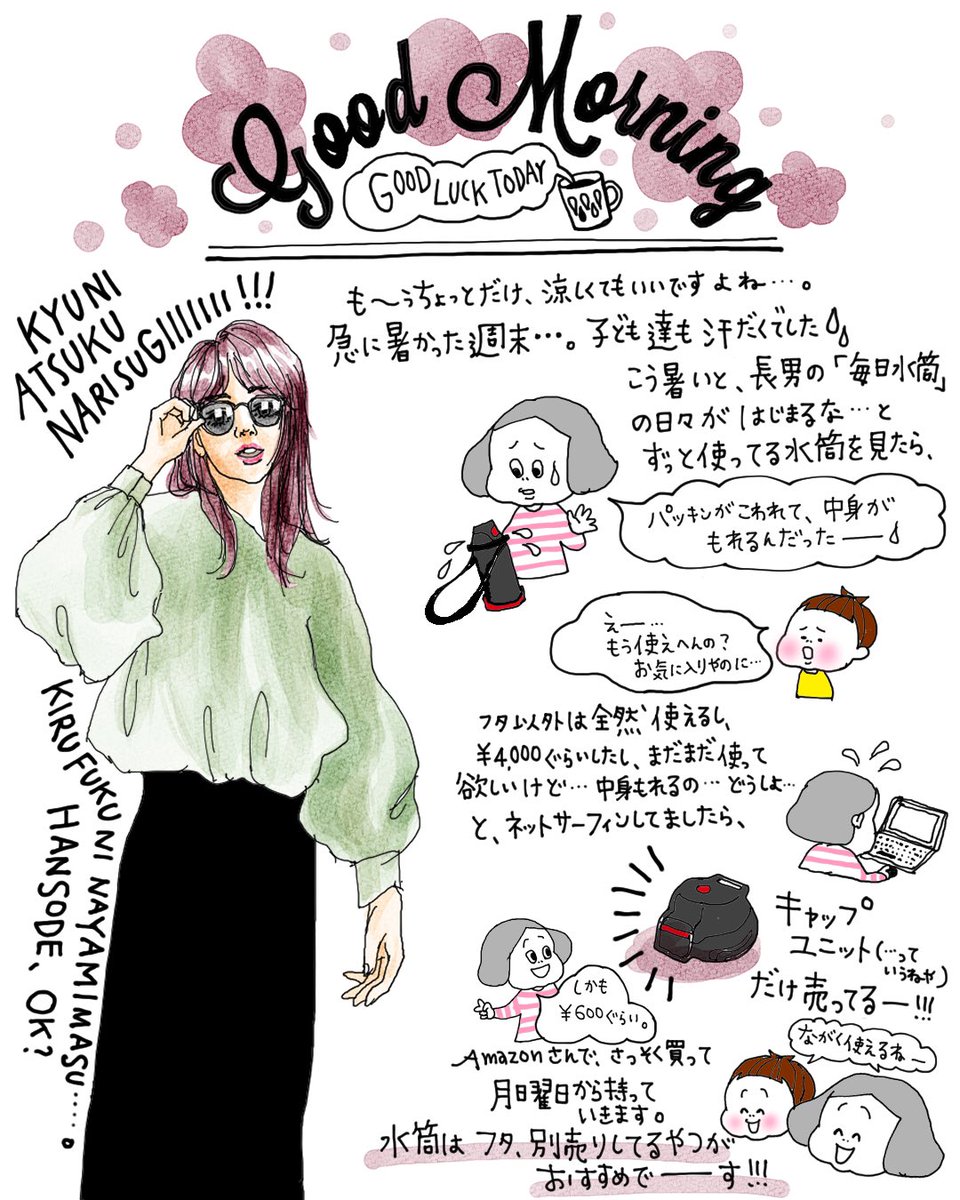 Good Morning
GOOD LUCK TODAY
KYUNI
ATSUKU
NARISUGIIIIIII!!!
も〜うちょっとだけ、涼しくてもいいですよね…。
急に暑かった週末…。子ども達も汗だくでした
こう暑いと、長男の「毎日水筒」
の日々がはじまるな…と
ずっと使ってる水筒を見たら、
パッキンがこわれて、中身が
もれるんだったー
えー…
もう使えへんの？
お気に入りやのに…
フタ以外は全然使えるし、
¥4,000ぐらいしたし、まだまだ使って
欲しいけど…中身もれるの…どうしよ…
と、ネットサーフィンしてましたら、
キャップ
ユニット(…って
いうねや)
だけ売ってるー!!!
しかも
¥600ぐらい。
Amazonさんで、さっそく買って
月曜日から持って
いきます。
ながく使えるねー
水筒はフタ、別売りしてるやつが
おすすめでーーす!!!
KIRU FUKU NI NAYAMIMASU.....。
HANSODE、OK?